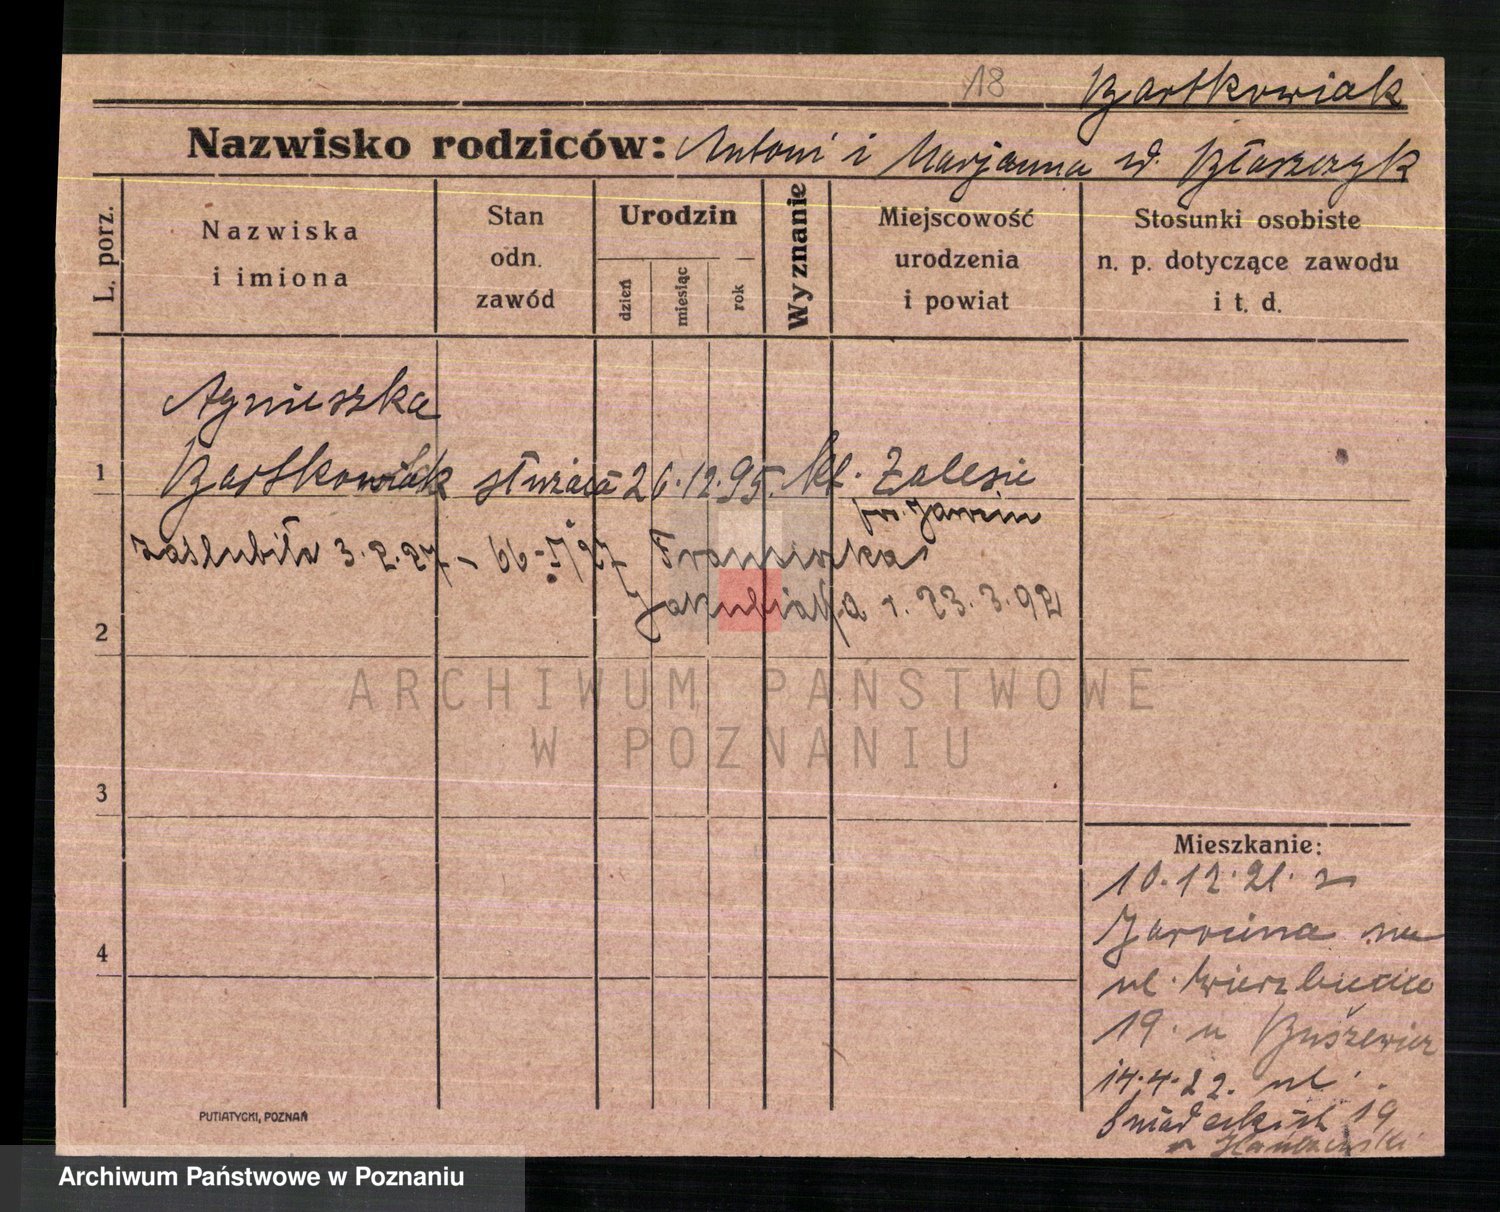 18 Bartkowiak
Nazwisko rodziców: Antoni i Marjanna ur. Błaszczyk
L. porz.
Nazwiska
i imiona
Stan
odn.
zawód
Urodzin
dzień
miesiąc
rok
Wyznanie
Miejscowość
urodzenia
i powiat
Stosunki osobiste
n. p. dotyczące zawodu
i t. d.
Agnieszka
1 Bartkowiak służąca 26. 12. 95. kt. Zalesie
pow. Jarocin
zaślubiła 3. 2. 27 Franciszka
Jakubiaka 23. 3. 92
2
ARCHIWUM PAŃSTWOWE
W POZNANIU
3
4
Mieszkanie:
10. 12. 21. z
Jarocina na
ul. Wierzbięcice
19. u
14. 4. 22. ul.
Śniadeckich 19
PUTIATYCKI, POZNAŃ
Archiwum Państwowe w Poznaniu